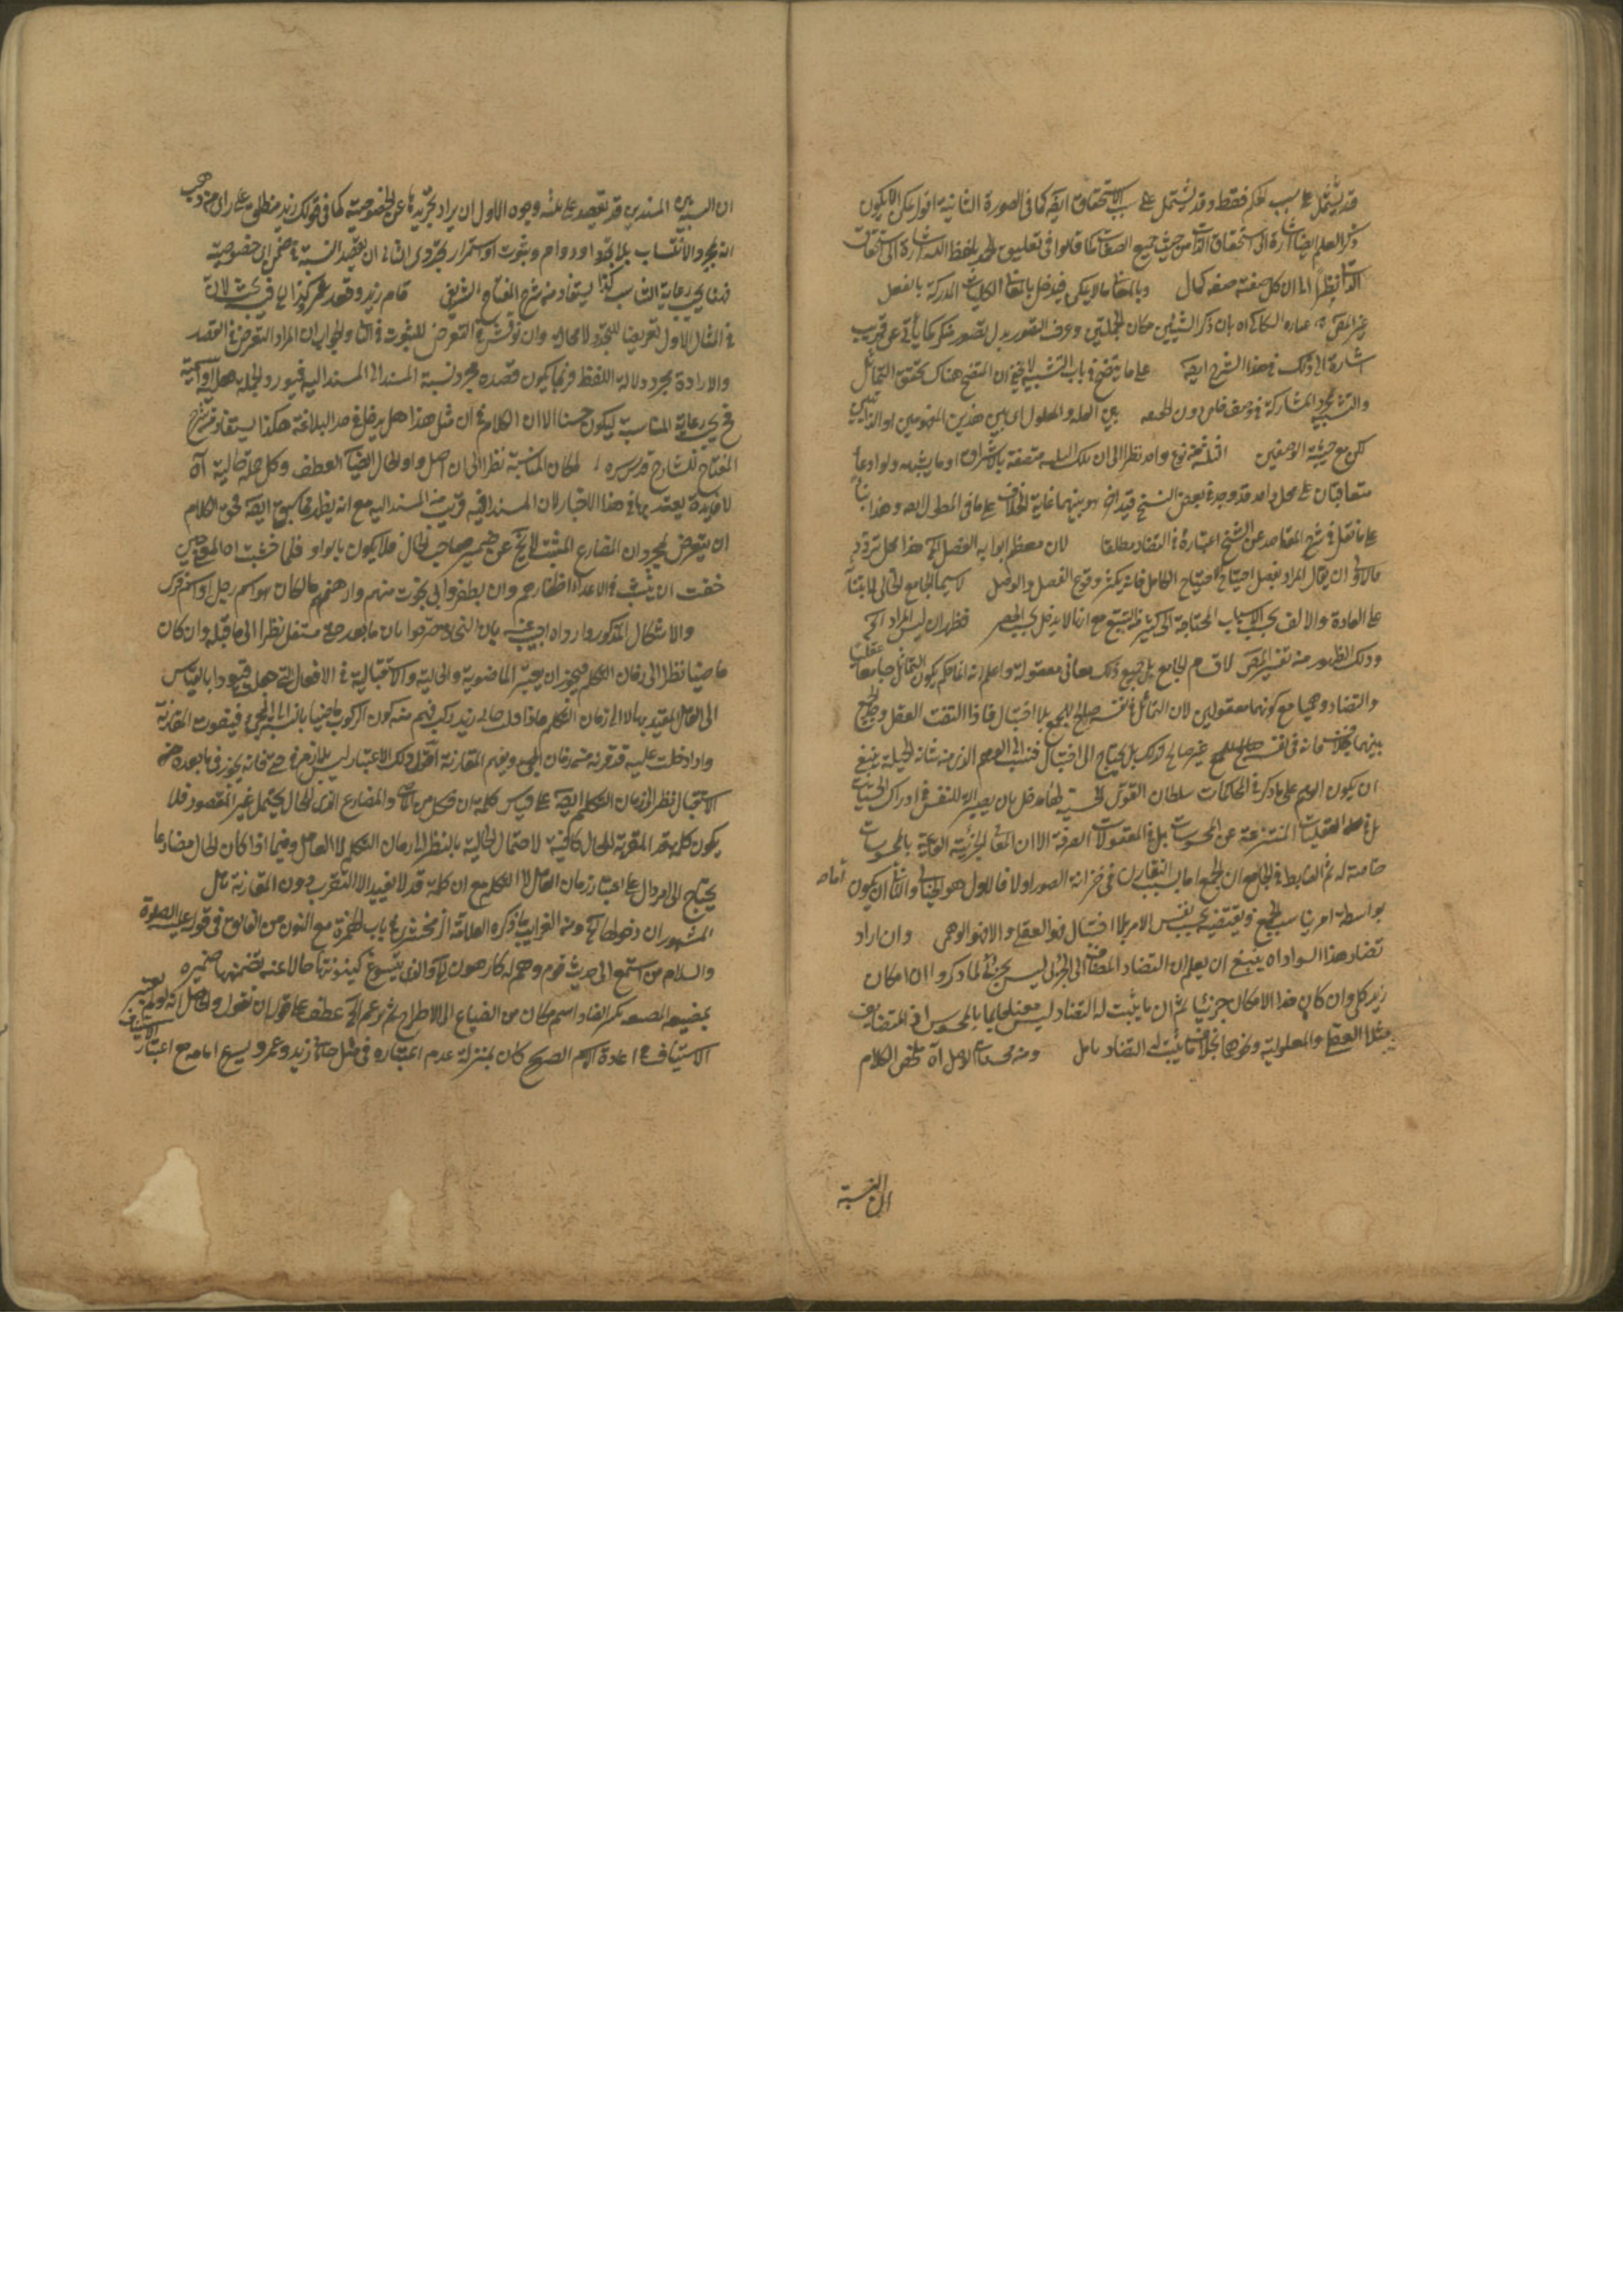 قد يشتمل على سبب الحكم فقط وقد يشتمل على سبب الاستحقاق ايضا كما فى الصورة الثانية اقول يمكن ان لا يكون
ذكر العلم ايضا اشارة الى استحقاق الذات من حيث جميع الصفات كما قالوا فى تعليق الحمد بلفظ الله اشارة الى استحقاق
الذات نظرا الى ان كل صفته صفة كمال وبالمعانى ما لا يكى فيدخل بالمعانى الكليات المدركة بالعقل
غير المص عبارة السكاكى اه بان ذكر الشيئين مكان الجملتين وعرف التصور بدل تصور منكر كما يأتى عن قريب
اشارة الى ذلك فى هذا الشرح ايضا على ما يتضح فى باب التشبيه لا يخفى ان المتضح هناك تحقق التماثل
والتشبيه بمجرد المشاركة فى وصف خاص دون الحقيقة بين العلة والمعلول اى بين هذين المفهومين او الذاتين
لكن مع حيثية الوصفين نوع واحد نظرا الى ان تلك متصفة بالاشراق او ما يشبهه ولو ادعاء
متعاقبان على محل واحد قد وجد فى بعض النسخ قيد اخر هو بينهما غاية الخلاف على ما فى المطول وهذا بناء
على ما نقل فى شرح المقاصد عن الشيخ اعتباره فى التضاد مطلقا لان معظم ابوابه الفصل الخ هذا محل تردد
فالاولى ان يقال المراد بفضل احتياج احتياج الكامل فانه يكثر وقوع الفصل والوصل لا سيما الجامع الخيالى فان مبناه
على العادة والالف بحسب الاسباب المحتاجة الى كثير التتبع مع انها لا يدخل تحت الحصر فظهر ان ليس المراد الخ
وذلك الظهور من تفسير المص لاقسام الجامع بل جميع ذلك معانى معقولة واعلم انه انما حكم بكون التماثل جامعا عقليا
والتضاد وهميا مع كونهما معقولين لان التماثل فى نفسه صالح للجمع بلا احتيال فاذا التفت العقل وجمع
بينهما بخلاف فانه فى نفسه غير صالح لذلك بل يحتاج الى احتيال فنسب الى الوهم الذى من شانه الحيلة ينبغى
ان يكون الوهم على ما ذكر فى المحاكمات سلطان القوى الحسية لها مدخل بان يصير آلة للنفس فى ادراك الجزئيات
بل فى العقليات المنتزعة عن المحسوسات بل فى المعقولات الصرفة الا ان المعانى الجزئية القائمة بالمحسوسات
خاصة له ثم الضابط فى الجامع ان الجمع اما بسبب التقارن فى خزانة الصور اولا فالاول هو الخيالى والثانى ان يكون اما
بواسطة امر يناسب الجمع ويقتضيه بحسب نفس الامر بلا احتيال فهو العقلى والا فهو الوهمى وان اراد
تضاد هذا السواد اه ينبغى ان يعلم ان التضاد المضاف الى الجزئى ليس بجزئى لما ذكروا ان امكان
زيد كلى وان كان هذا الامكان جزئيا ثم ان ما يثبت له التضاد ليس معنى قائما بالمحسوس اذ المتضايف
مثلا العلية والمعلولية وهو بخلاف ما يثبت له التضاد تامل ومن محسنات الوصل آه تلخص الكلام
ان النسبة
ان النسبة بين المسندين قد تقصد على ثلثة وجوه الاول ان يراد تجريدها عن الخصوصية كما فى قولك زيد منطلق على راى من ذهب
انه بمجرد الانتساب بلا تجدد ودوام وثبوت او استمرار تجددى الثانى ان يقصد النسبة فى ضمن اى خصوصية
فينبغى رعاية التناسب كذا يستفاد من شرح المفتاح الشريفى قام زيد وقعد عمرو كذا فيه بحث لان
فى المثال الاول تعريضا للتجدد لا محالة وان نوقش فى التعرض للثبوت فى الثانى والجواب ان المراد التعرض فى القصد
والارادة بمجرد دلالة اللفظ وربما يكون قصده مجرد نسبة المسند الى المسند اليه فيورد الجملة فعلية او اسمية
فحينئذ رعاية المناسبة يكون حسنا الا ان الكلام فى ان مثل هذا هل يدخل فى حد البلاغة هكذا يستفاد من شرح
المفتاح للشارح قدس سره لمكان المناسبة نظرا الى ان اصل واو الحال ايضا العطف وكل جملة حالية آه
لا فائدة يعتد بها فى هذا الاخبار لان المسند فيه قريب من المسند اليه مع انه يظهر مما سبق ايضا فحق الكلام
ان يتعرض لمجرد ان المضارع المثبت لا يخ عن ضمير صاحب الحال فلا يكون بالواو فلما خشيت اى المعنى حين
خفت ان ينشب فى الاعداء اظفارهم وان يظفروا بى نجوت منهم وارهنتهم مالكا هو اسم رجل او اسم فرس
والاشكال المذكور وارد اه اجيب عنه بان النحاة صرحوا بان ما بعد حتى مستقبل نظرا الى ما قبله وان كان
ماضيا نظرا الى زمان التكلم فيجوز ان يعتبر الماضوية والحالية والاستقبالية فى الافعال التى هى قيود بالقياس
الى العامل المقيد بها لا الى زمان التكلم فاذا قلت جاءنى زيد ركب فهم منه كون الركوب ماضيا بالنسبة الى المجئ فيفوت المقارنة
واذا دخلت عليه قد قربته من زمان المجئ ويفهم المقارنة اقول ذلك الاعتبار ليس بلازم فى حتى فانه يجوز فى ما بعده
الاستقبال نظرا الى زمان التكلم ايضا على قياس كلمة ان فكل من الماضى والمضارع الذى للحال يحتمل غير المقصود فلا
يكون كلمة قد المقربة للحال كافية لاحتمال الحالية بالنظر الى زمان التكلم لا العامل وفيما اذا كان الحال مضارعا
يحتاج الى امر دال على اعتبار زمان العامل لا التكلم مع ان كلمة قد لا تفيد الا التقريب دون المقارنة تامل
المشهور ان دخولها الخ ومن الغرايب ما ذكره العلامة الزمخشرى فى باب الهمزة مع النون من الفائق فى قوله عليه الصلوة
والسلام من استمع الى حديث قوم وهم له كارهون الخ والذى يسوغ كينونتها حالا عنه تضمنها ضميره
بمضيعة بكسر الضاد اسم مكان من الضياع اى الاطراح ثم يزعم الخ عطف على قوله ان تقول والحاصل انه لو لم يعتبر
الاستيناف فى اعادة الاسم الصريح كان بمنزلة عدم اعتباره فى مثل جاءنى زيد وعمرو يسرع امامه مع اعتبار الاستيناف